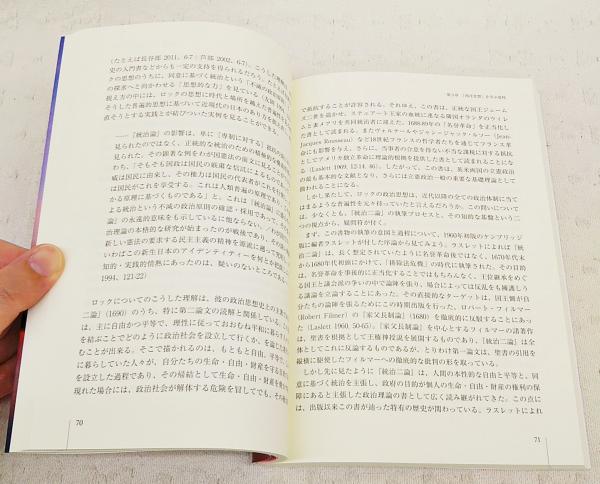 （たとえば長谷部 2011, 6-7；芦部 2002, 6-7）。こうした理解
史の入門書などからも一定の支持を得られるだろう。たし
クの思想のうちに、同意に基づく統治という「不滅の政治
の探求へと向かわせる「思想的な力」を見ている（友岡
視え方の中には、ロックの思想に時代と場所を越えた普遍性
そうした普遍的思想に基づいて近現代の日本のあり方を
直そうとする実践とが結びついた実例を見ることができる。
──『統治論』の影響は、単に「専制に対する」抗议
見られたのではなく、正統的な統治のための積極的な
見られた。その顕著な例をわが国憲法の前文に見ること
わち、「そもそも国政は国民の厳粛な信託によるものであ
威は国民に由来し、その権力は国民の代表者がこれを行使
は国民がこれを享受する。これは人類普遍の原理であり
かかる原理に基づくものである」と。これは、ロックの
よる統治という不滅の政治原則の確認・採用であって、
論』の永遠的意味をも示しているに他ならない。
治理論の本格的な研究が始まったのが戦後であり、その
新しい憲法の要求する民主主義の精神を源流に遡って
いわばこの新生日本のアイデンティティーを何とか把握
知的・実践的情熱にあったのは、疑いのないところである
1994, 121-22）
ロックについてのこうした理解は、彼の政治思想史上の主著
二論』（1690）のうち、特に第二論文の読解と関係している。
は、主に自由かつ平等で、理性に従っておおむね平和に暮らし
を結ぶことでどのように政治社会を設立して行くか、を論じた
むことが出来る。そこで描かれるのは、もともと自由で、平等
に暮らしていた人々が、自分たちの生命・自由・財産を守る
を設立した過程であり、その帰結として生命・自由・財産
現れた場合には、政治社会が解体する危険を冒してでも、その
70
で抵抗することが許容される。それゆえ、この書は、正統な国王ジェーム
ズ二世を退かせ、ステュアート王家の血統に連なる隣国オランダのウィレ
ムと妻メアリを共同統治者に迎えた、1688-89年の「名誉革命」を正当化し
た書として読まれる。またヴォルテールやジャン=ジャック・ルソー（Jean-
Jacques Rousseau）など18世紀フランスの哲学者たちを通じてフランス革
命にも影響を与え、さらに、当事者の合意を得ない不当な課税に対する抵抗
としてアメリカ独立革命に理論的根拠を提供した書として読まれることにな
る（Laslett 1969, 12-14, 46）。したがって、この書は、英米両国の立憲政治
の最も基本的な文献となり、さらには立憲政治一般の重要な基礎理論として
扱われることになる。
しかし果たして、ロックの政治思想は、近代以降の全ての政治体制に当て
はまるような普遍性を元々持っていたと言えるだろうか。この問いについて
は、少なくとも、『統治二論』の執筆プロセスと、その知的な基盤という二
つの視点から、疑問符が付く。
まず、この書物の執筆の意図と過程について、1960年初版のケンブリッジ
版に編者ラスレットが付した序論から見てみよう。ラスレットによれば『統
治二論』は、長く想定されていたように名誉革命後ではなく、1670年代末
から1680年代初頭にかけて、「排除法危機」の時代に執筆された。その目的
は、名誉革命を事後的に正当化することではもちろんなく、王位継承をめぐ
る国王と議会派の争いの中で論陣を張り、場合によっては反乱をも擁護しう
る議論を立論することにあった。その直接的なターゲットは、国王側が自
分たちの論陣を張るためにこの時期出版を行った、ロバート・フィルマー
（Robert Filmer）の『家父長制論』（1680）を徹底的に反駁することにあっ
た（Laslett 1960, 50-65）。『家父長制論』を中心とするフィルマーの諸著作
は、聖書を根拠として王権神授説を展開するものであり、『統治二論』は全
体としてこれに反論するものであるが、とりわけ第一論文は、聖書の引用を
縦横に駆使したフィルマーへの徹底的な批判の形を取っている。
しかし先に見たように『統治二論』は、人間の本性的な自由と平等と、同
意に基づく統治を主張し、政府の目的が個人の生命・自由・財産の権利の保
障にあると主張した政治理論の書として広く読み継がれてきた。この点に
は、出版以来この書が辿った特有の歴史が関わっている。ラスレットによれ
71